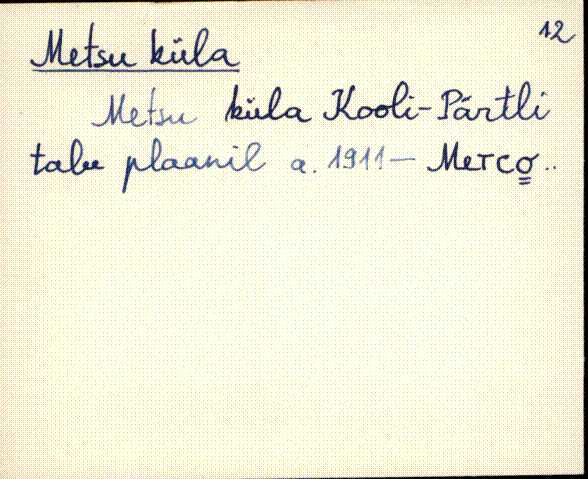 12
Metsu küla
Metsu küla Kooli-Pärtli
talu plaanil a. 1911 — Мегсо..